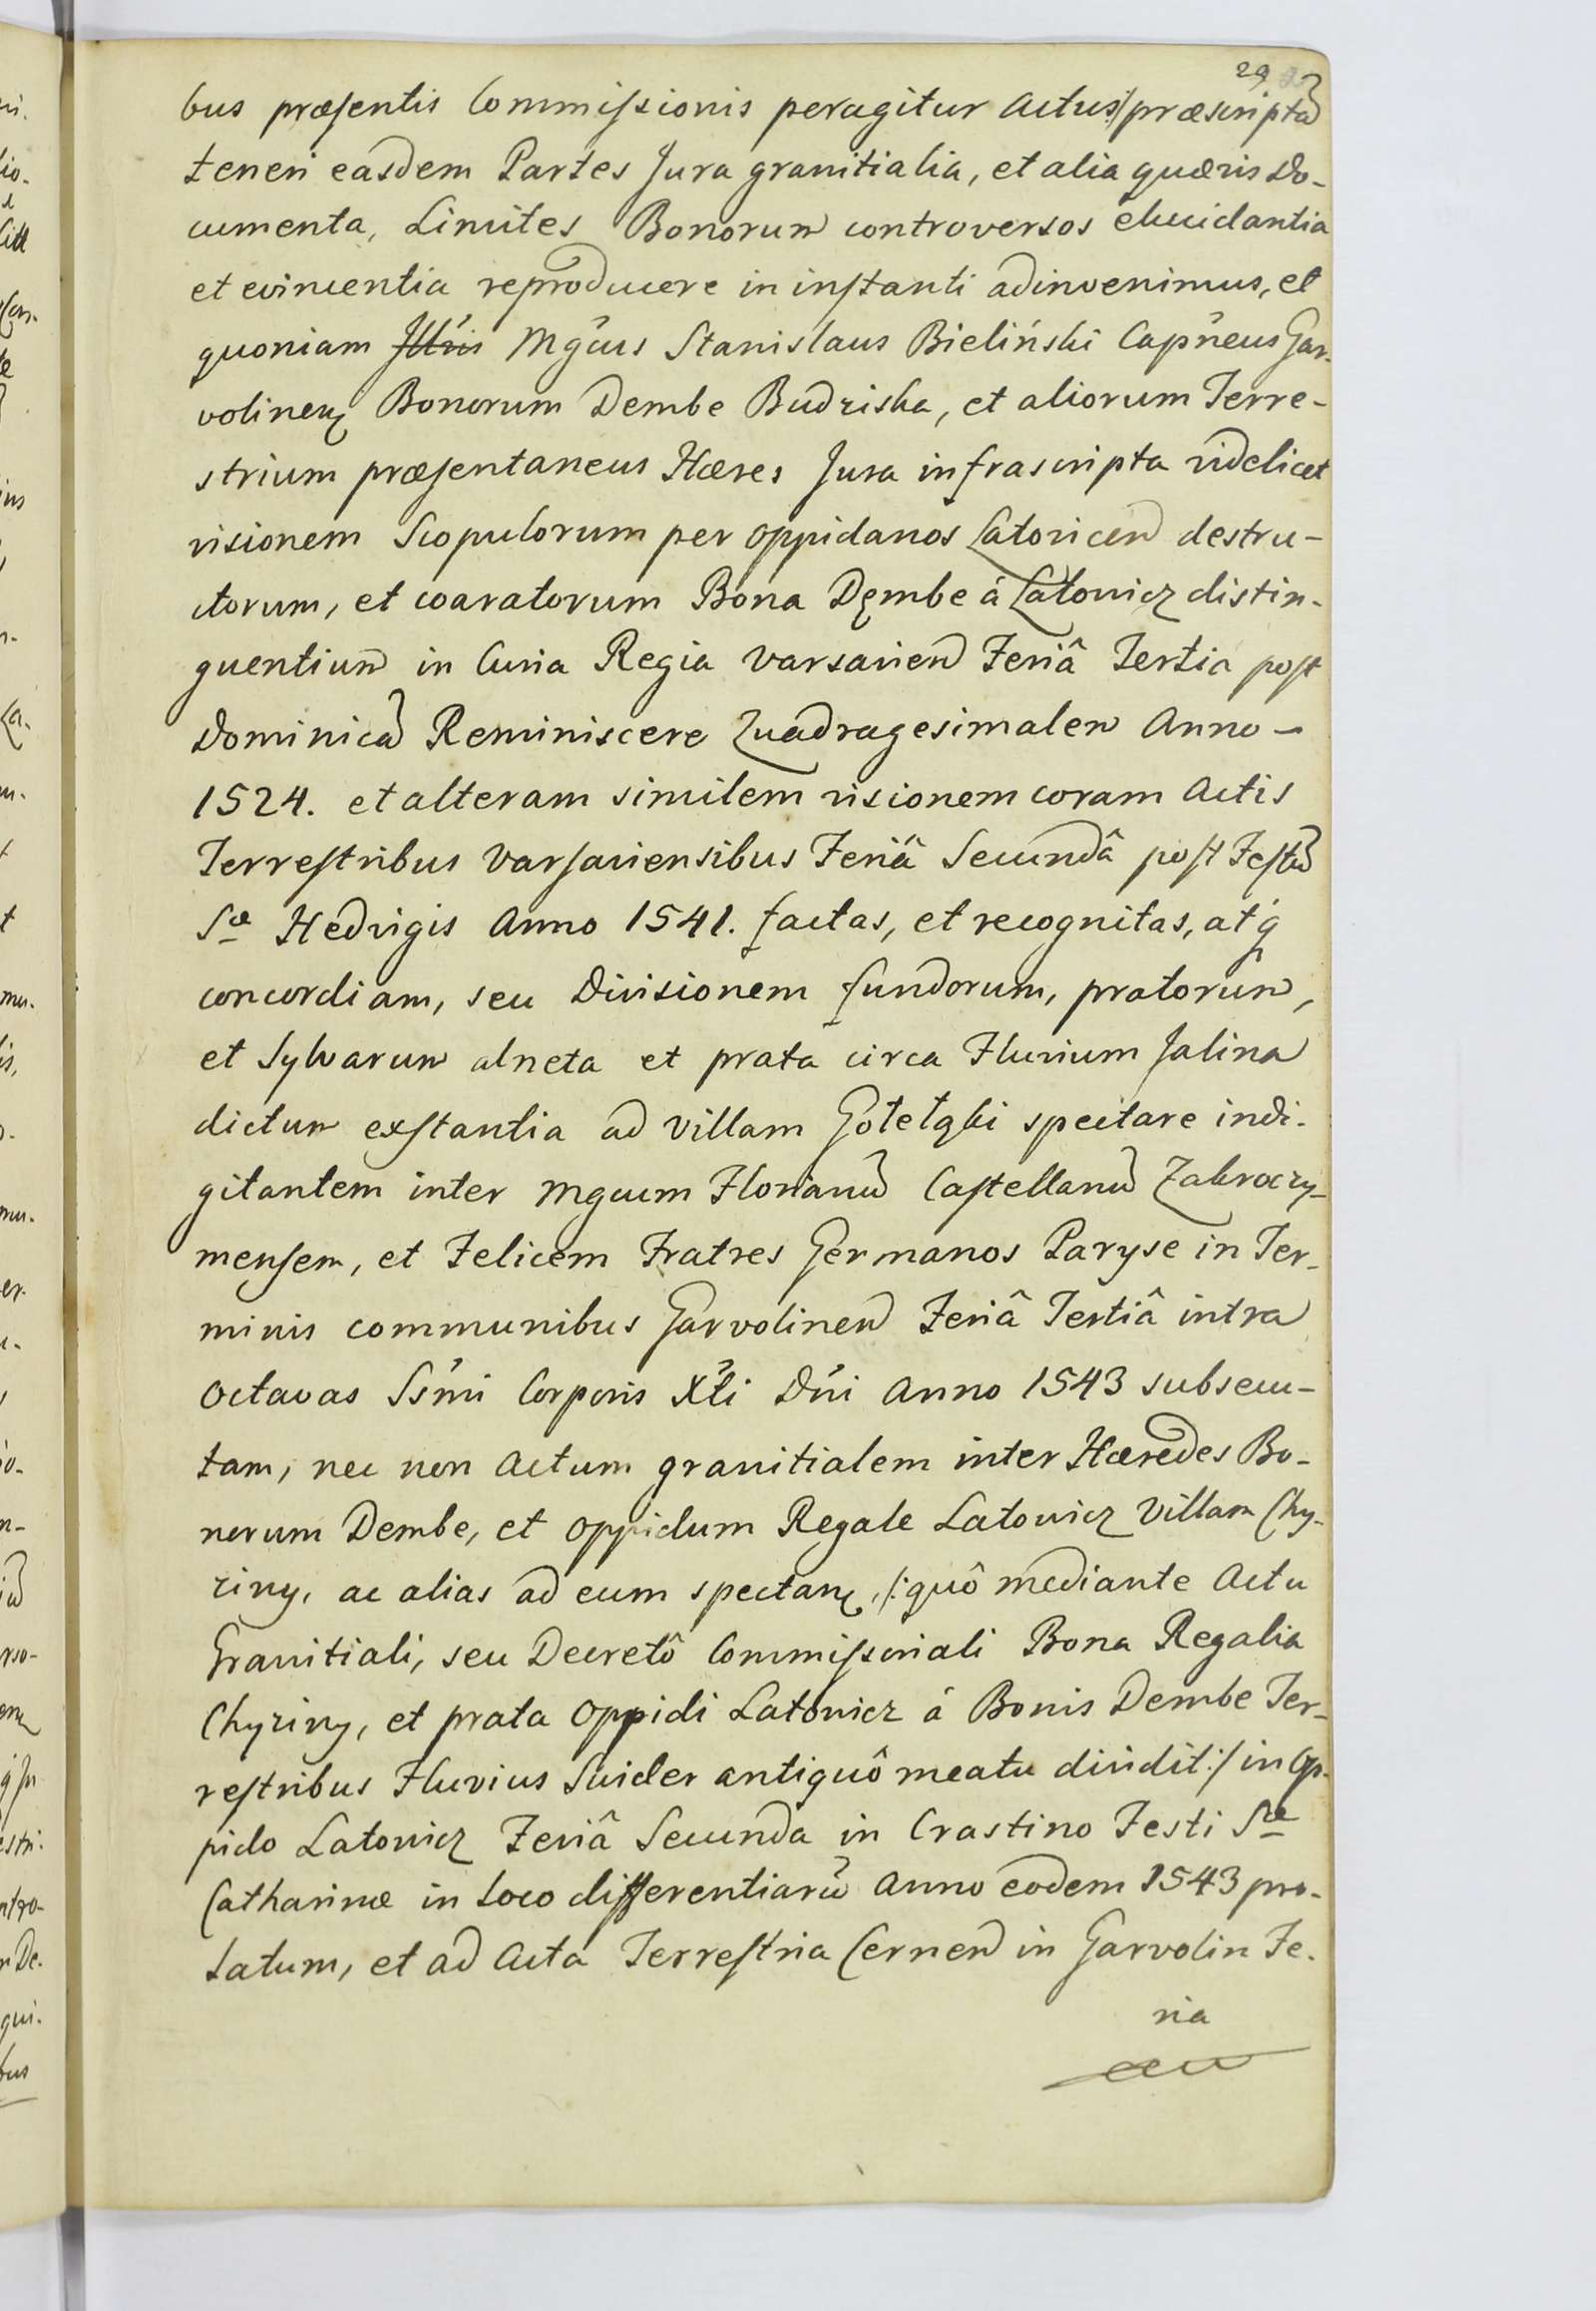 29
bus præsentis Commissionis peragitur Actus:/ præscripta
teneri easdem Partes Jura granitialia, et alia quævis Do-
cumenta, Limites Bonorum controversos elucidantia
et evincentia reproducere in instanti adinvenimus, et
quoniam Mgcus Stanislaus Bieliński Capneus Gar-
volinen Bonorum Dembe Budziska, et aliorum Terre-
strium præsentaneus Hæres Jura infrascripta videlicet
visionem Scopulorum per oppidanos Latovicen destru-
ctorum, et coaratorum Bona Dęmbe á Latowicz distin-
guentium in Curia Regia Varsavien Feriâ Tertia post
Dominicã Reminiscere Quadragesimalem Anno -
1524. et alteram similem visionem coram Actis
Terrestribus Varsaviensibus Feriâ Secundâ post Festũ
Sæ Hedvigis Anno 1541. factas, et recognitas, atq
concordiam, seu Divisionem fundorum, pratorum,
et Sylvarum alneta et prata circa Fluvium Jalina
dictum exstantia ad Villam Gołełąki spectare indi-
gitantem inter Mgcum Florianũ Castellanũ Zakroczy-
mensem, et Felicem Fratres Germanos Paryse in Ter-
minis communibus Garvolinen Feriâ Tertiâ intra
Octavas Ssmi Corporis Xti Dni Anno 1543 subsecu-
tam, nec non Actum granitialem inter Hæredes Bo-
norum Dembe, et Oppidum Regale Latowicz Villam Chy-
ziny, ac alias ad eum spectan, /: quô mediante Actu
Granitiali, seu Decretô Commissoriali Bona Regalia
Chyziny, et prata Oppidi Latowicz á Bonis Dembe Ter-
restribus Fluvius Swider antiquô meatu dividit :/ in Op-
pido Latowicz Feriâ Secunda in Crastino Festi Sæ
Catharinæ in Loco differentiarũ Anno eodem 1543 pro-
latum, et ad Acta Terrestria Cernen in Garvolin Fe-
ria